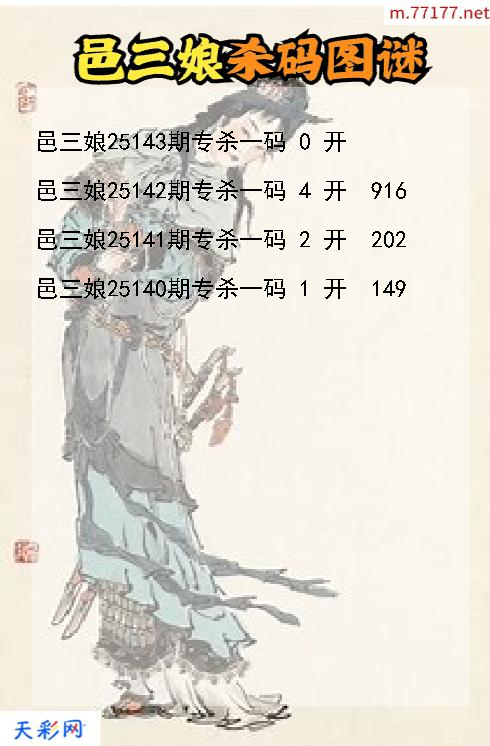 m.77177.net
邑三娘杀码图谜
邑三娘25143期专杀一码 0 开
邑三娘25142期专杀一码 4 开 916
邑三娘25141期专杀一码 2 开 202
邑三娘25140期专杀一码 1 开 149
天彩网